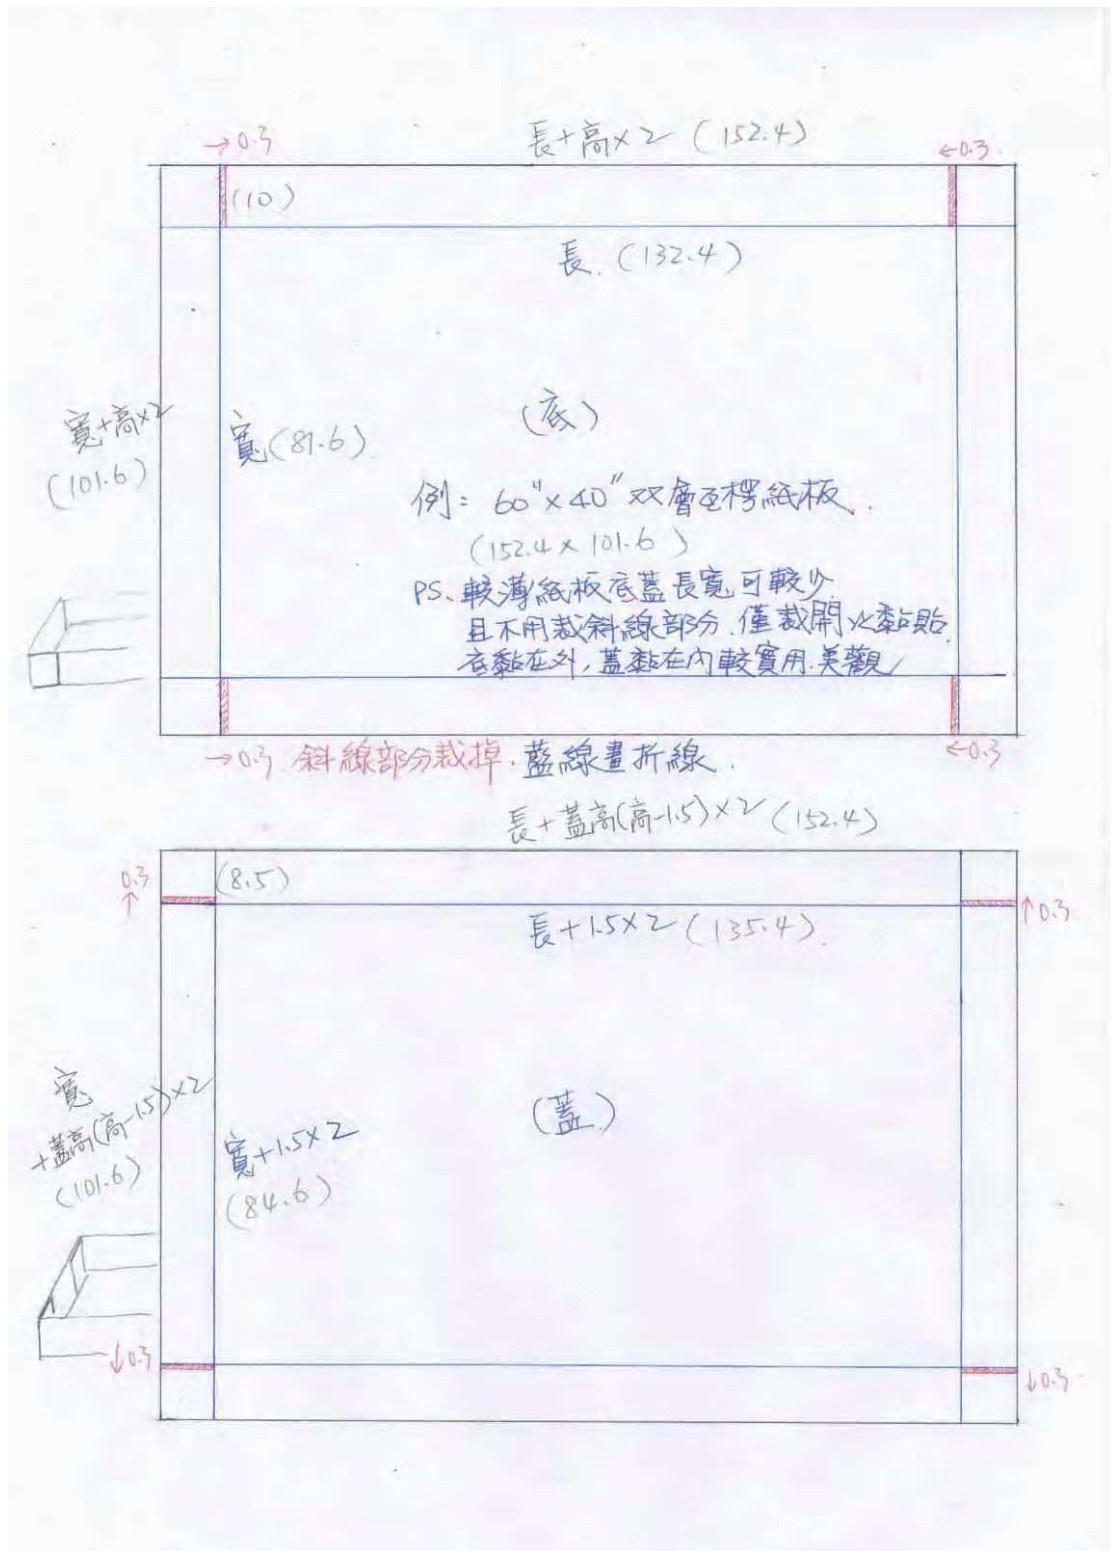 長+高×2 (152.4)
→0.3
←0.3
(10)
長. (132.4)
寬+高×2
(101.6)
寬(81.6)
(底)
例: 60"×40" 双層瓦楞紙板.
(152.4×101.6)
PS、較薄紙板底蓋長寬可較少
且不用裁斜線部分.僅裁開以黏貼
底黏在外,蓋黏在內較實用.美觀
→0.3 斜線部分裁掉.藍線畫折線.
←0.3
長+蓋高(高-1.5)×2 (152.4)
0.3
↑
(8.5)
↑0.3
長+1.5×2 (135.4).
寬
+蓋高(高-1.5)×2
(101.6)
寬+1.5×2
(84.6)
(蓋)
↓0.3
↓0.3